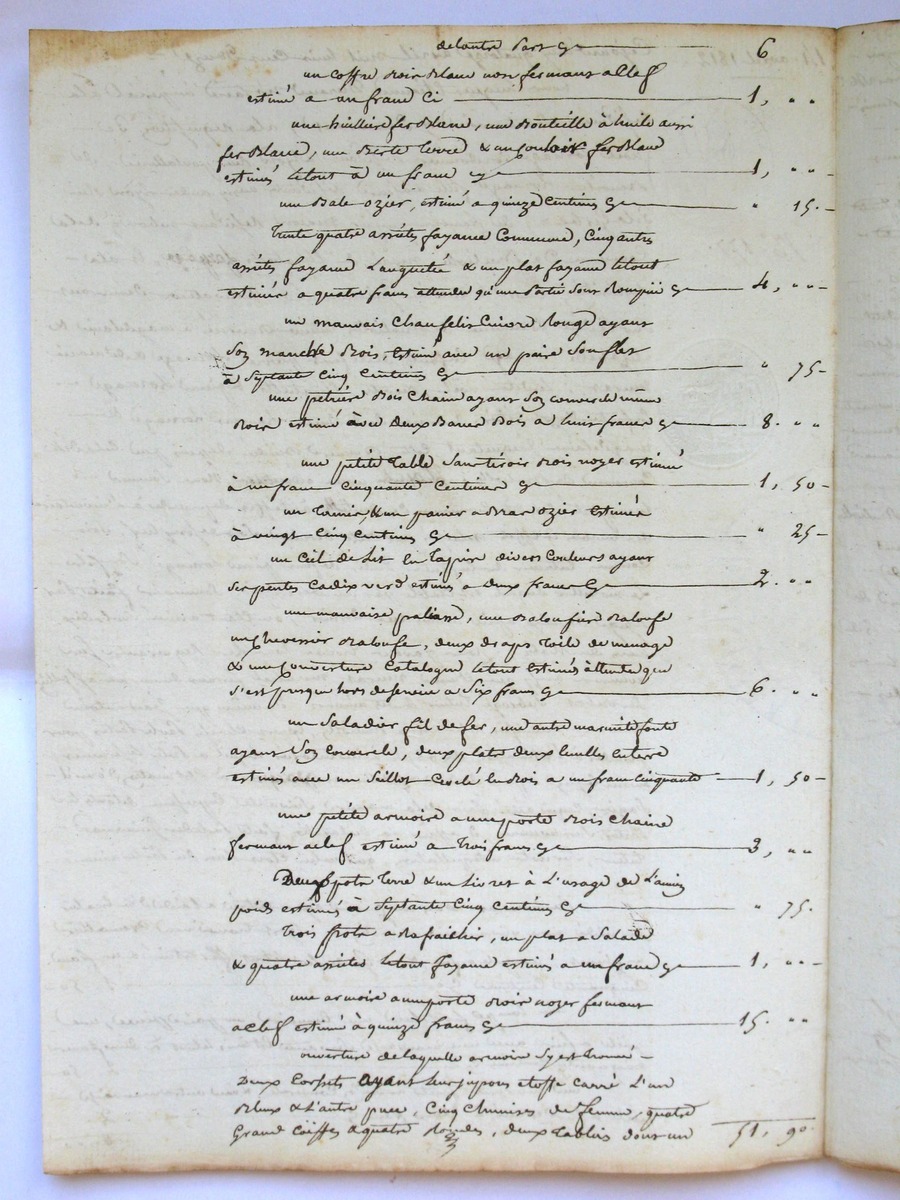 de lautre part Cy 6
un coffre Bois Blanc non fermant a Clef
estimé a un franc Ci 1, " "
une huilliere fer Blanc, une Bouteille à huile aussi
fer Blanc, une Berte Terre & un fer Blanc
estimés letout à un franc Cy 1, " "
une Bale ozier, estimé a quinze Centimes Cy " 15
Trente quatre assietes fayance Commune, Cinq autres
assietes fayance & un plat fayance letout
estimées a quatre francs attendu qu'une Partie sont Rompüe Cy 4, " "
un mauvais Chaufelit Cuivre Rouge ayant
Son manche Bois, estimé avec un paire Souflet
à Septante Cinq Centimes Cy " 75
une petriere Bois Chaine ayant Son couvercle même
Bois estimé avec Deux Bancs Bois a huit francs Cy 8. " "
une petite Table Sans tiroir Bois noyer estimée
à un franc Cinquante Centimes Cy 1, 50
un Tamis, & un panier a Bras ozier Estimés
à vingt Cinq Centimes Cy " 25
un Ciel de Lit en Tapis divers Couleurs ayant
Ser pentes Cadix verd estimés a deux francs Cy 2. " "
une mauvaise paliasse, une Baloufiere Baloufe
un Chevessier Baloufe, deux draps Toile de menage
& une Couverture Catalogne letout Estimés attendu que
s'est presque hors de service a Six francs Cy 6. " "
un Saladier fil de fer, une autre marmite fonte
ayant Son Couvercle, deux plats deux Ecuelles
estimés avec un Seillot Cerclé en Bois a un franc Cinquante 1, 50
une petite armoire a une porte Bois Chaine
fermant a Clef estimé à Trois francs Cy 3, " "
Deux pots Terre & un Livret à L'usage de
poids estimés à Septante Cinq Centimes Cy " 75.
Trois a Rafraichir, un plat a Salade
& quatre assietes letout fayance estimés a un franc Cy 1, " "
une armoire a une porte Bois noyer fermant
a Clef estimé à quinze francs Cy 15. " "
ouverture de laquelle armoire Sy est trouvé
Deux Corsets ayant leur jupons etoffe Carré L'un
Bleux & L'autre puce, Cinq Chemises de femme, quatre
Grand Coiffes a quatre Rondes, deux Tabliers dont un 51, 90